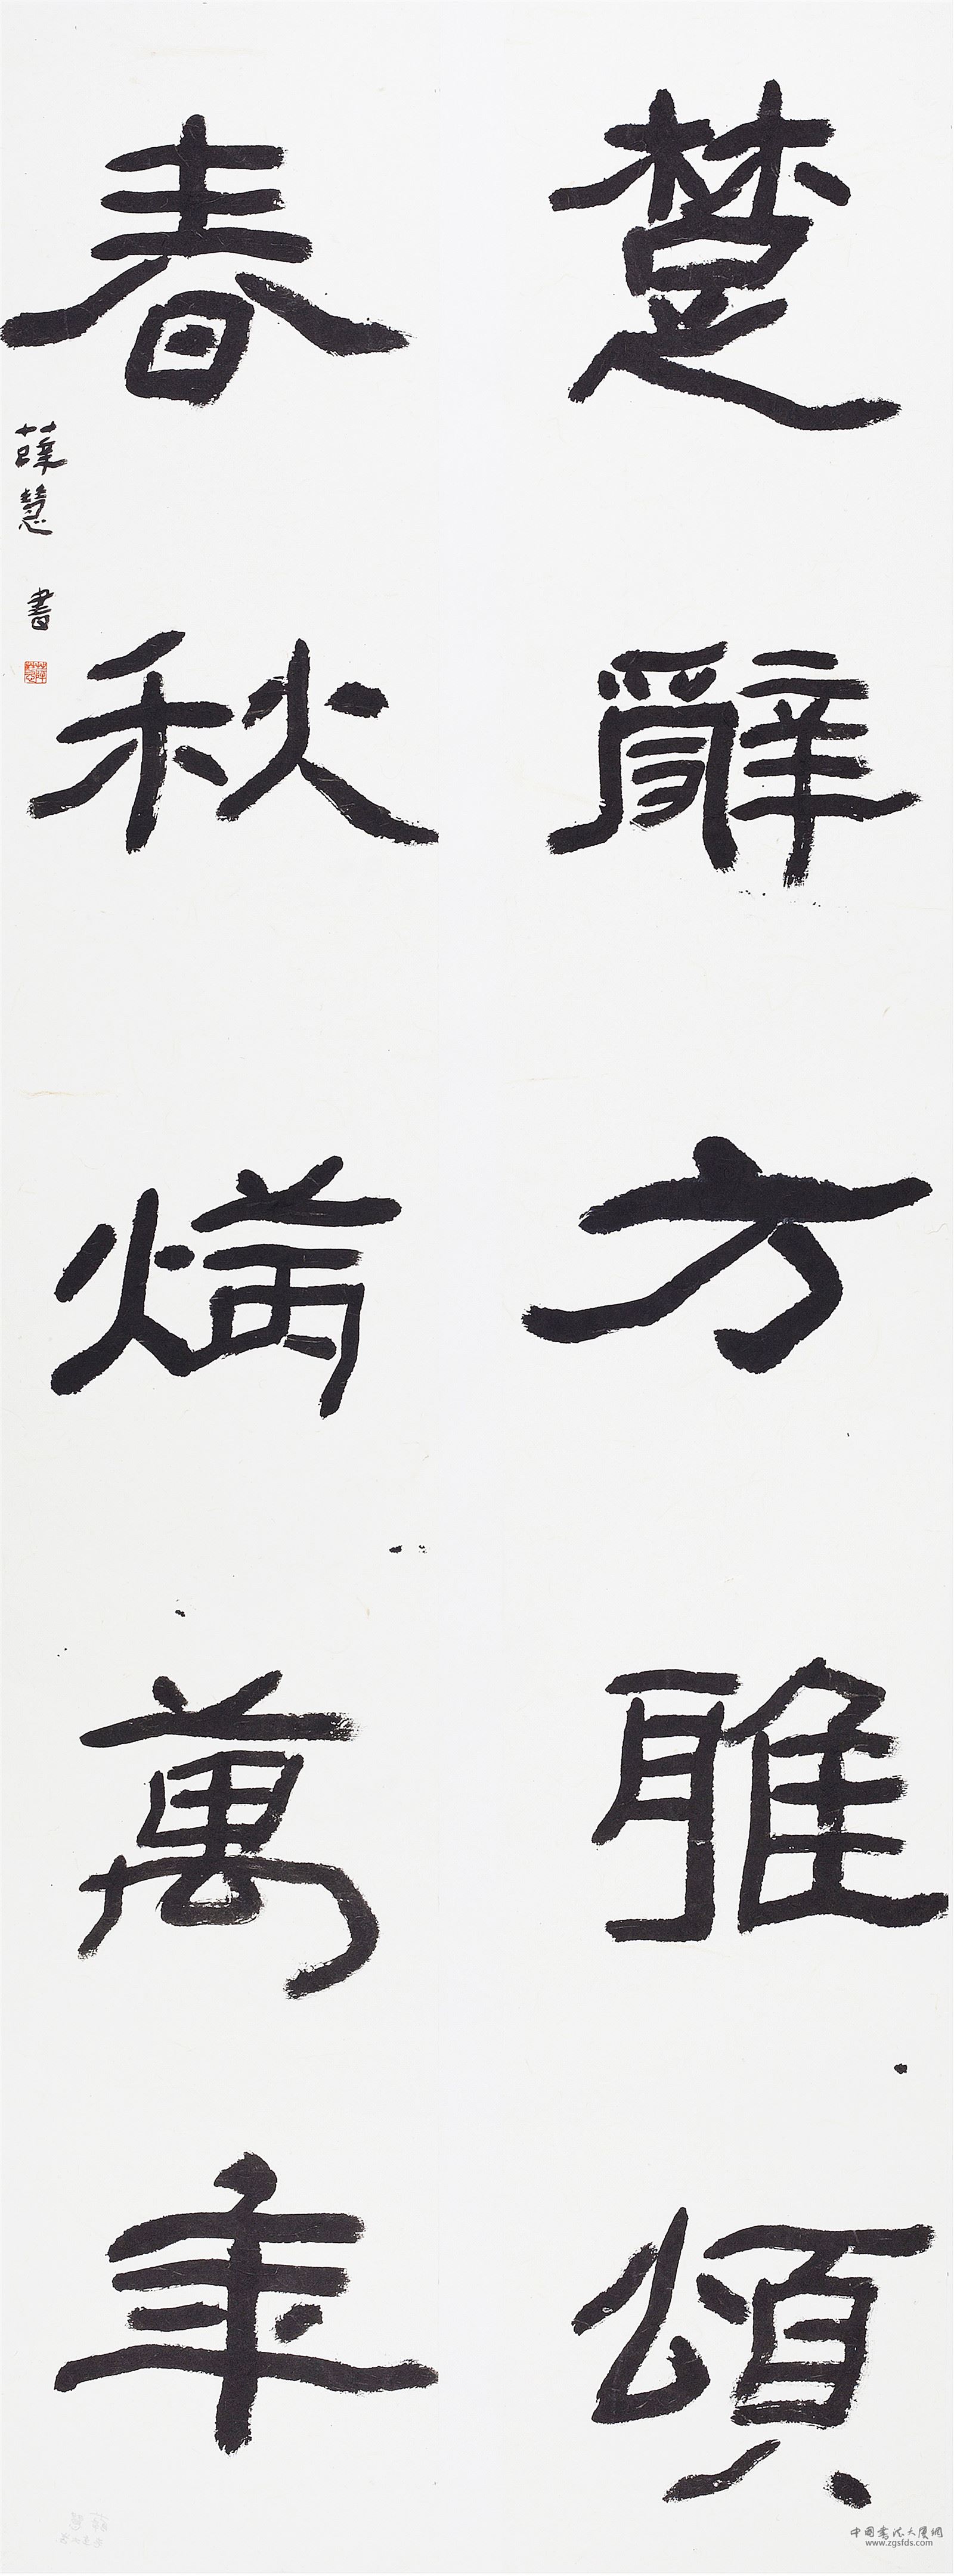 楚辭方雅頌
春秋炳萬年
薛慧 書
中国書法大厦網
www.zgsfds.com